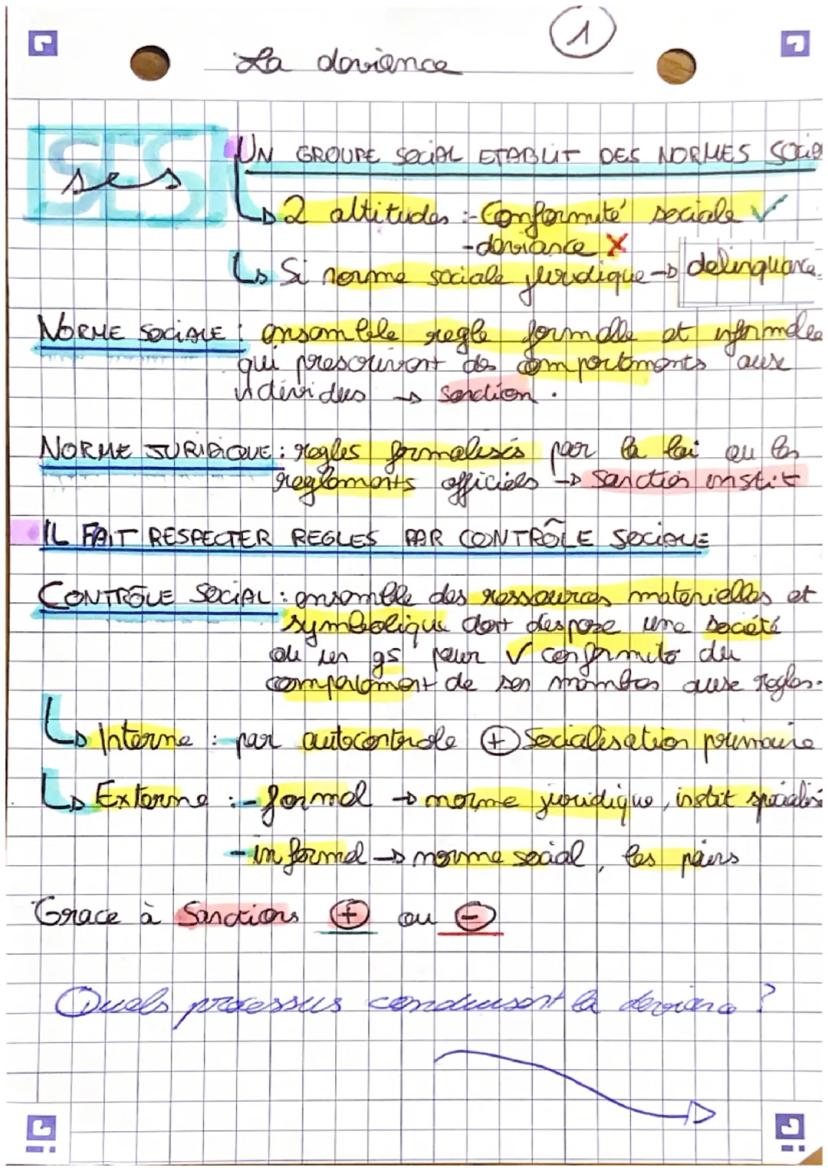 1
La deviance
SES
ses
UN GROUPE SOCIAL ETABLIT DES NORMES SOCIA
↳ 2 altitudes : - Conformité sociale ✓
- deviance X
↳ Si norme sociale juridique → delinquance
NORME SOCIALE : ensemble regle formelle et informelle
qui prescrivent des comportements aux
individus → sanction.
NORME JURIDIQUE : regles formalisés par la loi ou les
reglements officiels → sanction instit
IL FAIT RESPECTER REGLES PAR CONTRÔLE SOCIALE
CONTRÔLE SOCIAL : ensemble des ressources materielles et
symbolique dont dispose une société
ou un gs pour √ conformité du
comportement de ses membres aux regles.
↳ Interne : par autocontrole ⊕ Socialisation primaire
↳ Externe : - formel → norme juridique, instit spécialisé
- informel → norme social, les pairs
Grace à Sanctions ⊕ ou ⊖
Quels processus conduisent la deviance ?